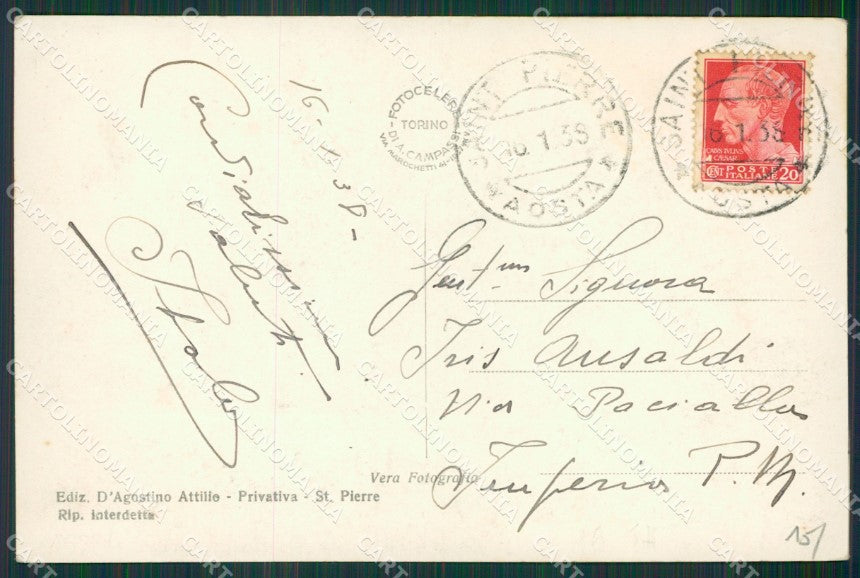 16-1-38-
Cordialissimi
saluti
Italo
FOTOCELERE
TORINO
DI A. CAMPASSI
SAINT PIERRE
16.1.38
AOSTA
SAINT PIERRE
16.1.38
AOSTA
CAIVS IVLIVS
CAESAR
CENT POSTE ITALIANE 20
Gent.ma Signora
Iris Ansaldi
Via
Imperia P. M.
Vera Fotografia
Ediz. D'Agostino Attilio - Privativa - St. Pierre
Rip. interdetta
15/
CARTOLINOMANIA